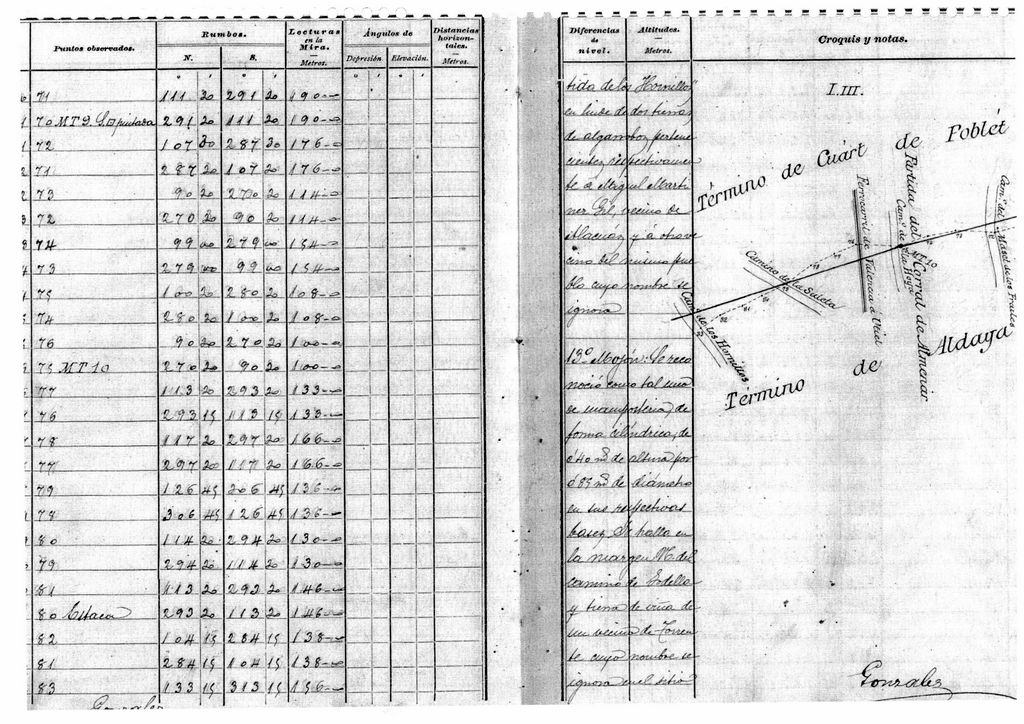 Puntos observados.
Rumbos.
N. S.
Lecturas en la Mira.
Metros.
Ángulos de
Depresión Elevación.
Distancias horizontales.
Metros.
71 111 20 291 20 190-0
70 MT 9. 291 20 111 20 190-0
72 107 30 287 30 176-0
71 287 20 107 20 176-0
73 90 20 270 20 114-0
72 270 20 90 20 114-0
74 99 00 279 00 154-0
73 279 00 99 00 154-0
75 100 20 280 20 108-0
74 280 20 100 20 108-0
76 90 20 270 20 100-0
75 MT 10 270 20 90 20 100-0
77 113 20 293 20 133-0
76 293 15 113 15 133-0
78 117 20 297 20 166-0
77 297 20 117 20 166-0
79 126 45 306 45 136-0
78 306 45 126 45 136-0
80 114 20 294 20 130-0
79 294 20 114 20 130-0
81 113 20 293 20 146-0
80 Estaca 293 20 113 20 146-0
82 104 15 284 15 138-0
81 284 15 104 15 138-0
83 133 15 313 15 156-0
Gonzales
Diferencias de nivel.
Altitudes.
Metros.
Croquis y notas.
tida de los Hornillos"
en linde de dos tierras
de algarrobos, pertene
cientes respectivamen
te á Miguel Marti
nez Gil, vecino de
Alacuás y á otro ve
cino del mismo pue
blo cuyo nombre se
ignora
13º Mojón: Se reco
noció como tal uno
de mampostería, de
forma cilíndrica, de
0'40 m de altura por
0'85 m de diámetro
en sus respectivas
bases. Se halla en
la margen N. del
camino de
y tierra de viña de
un vecino de Torren
te cuyo nombre se
ignora en el sitio
I.III.
Término de Cuárt de Poblét
Ferrocarril de Valencia á Utiel
Partida del Corral de Almenar
Camº de la Hoya
Camº del Masét de los Frailes
MT 10
Camino de la Saleta
Camº de los Hornillos
Termino de Aldaya
Gonzales